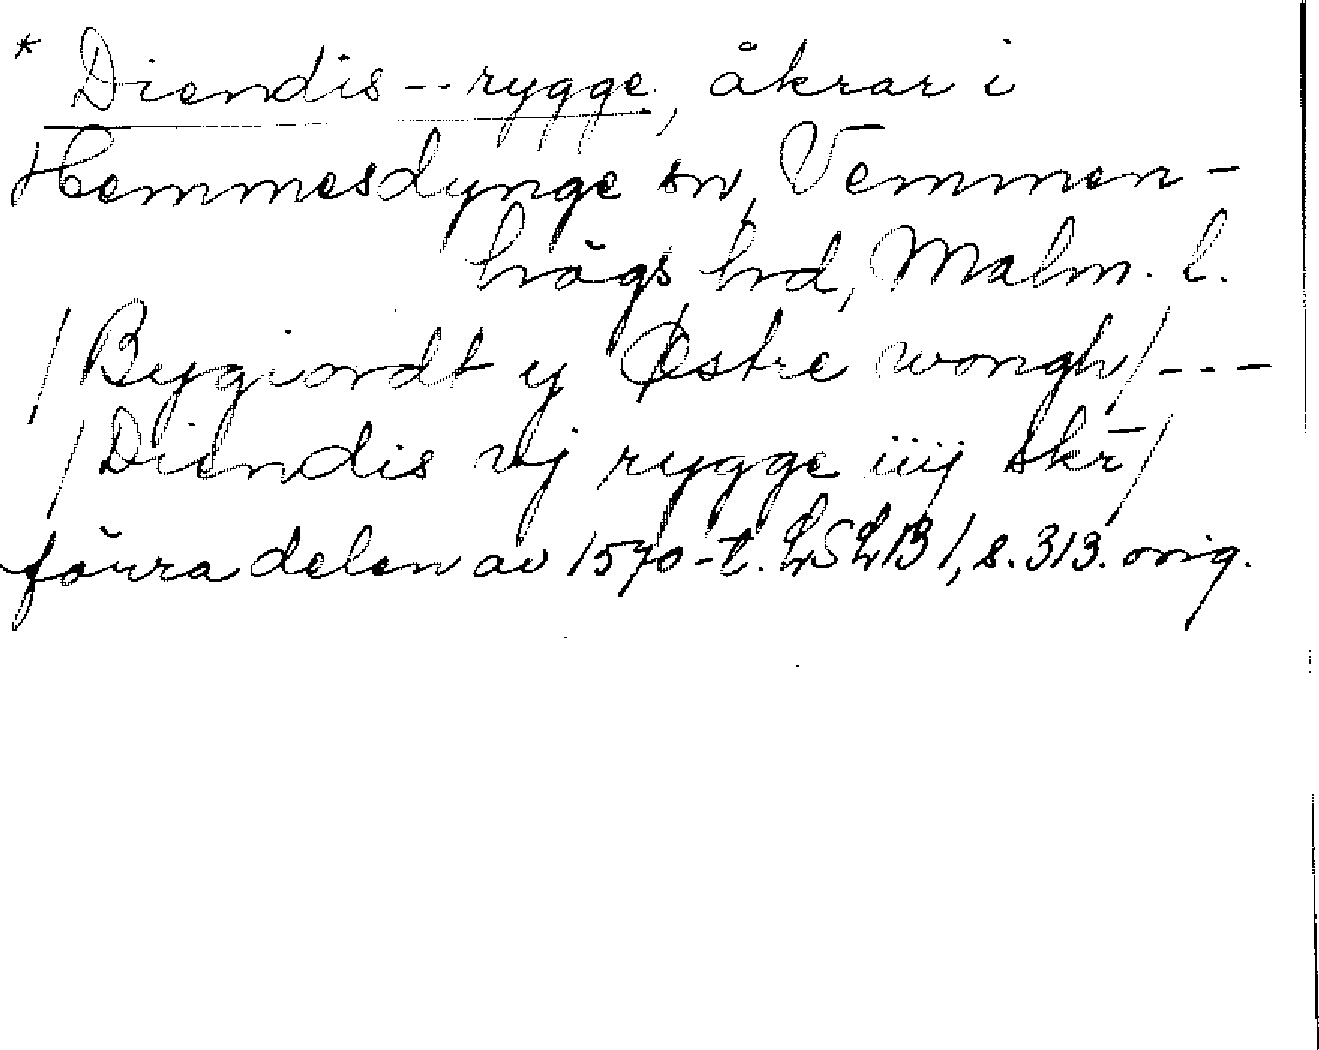 * Diendis -- rygge, åkrar i
Hemmesdynge sn, Vemmen-
högs hd, Malm. l.
/Bygiordt y Østre wongh/ ---
/Diendis vj rygge iiij skr̄/
förra delen av 1570-t. LSLB 1, s. 313. orig.